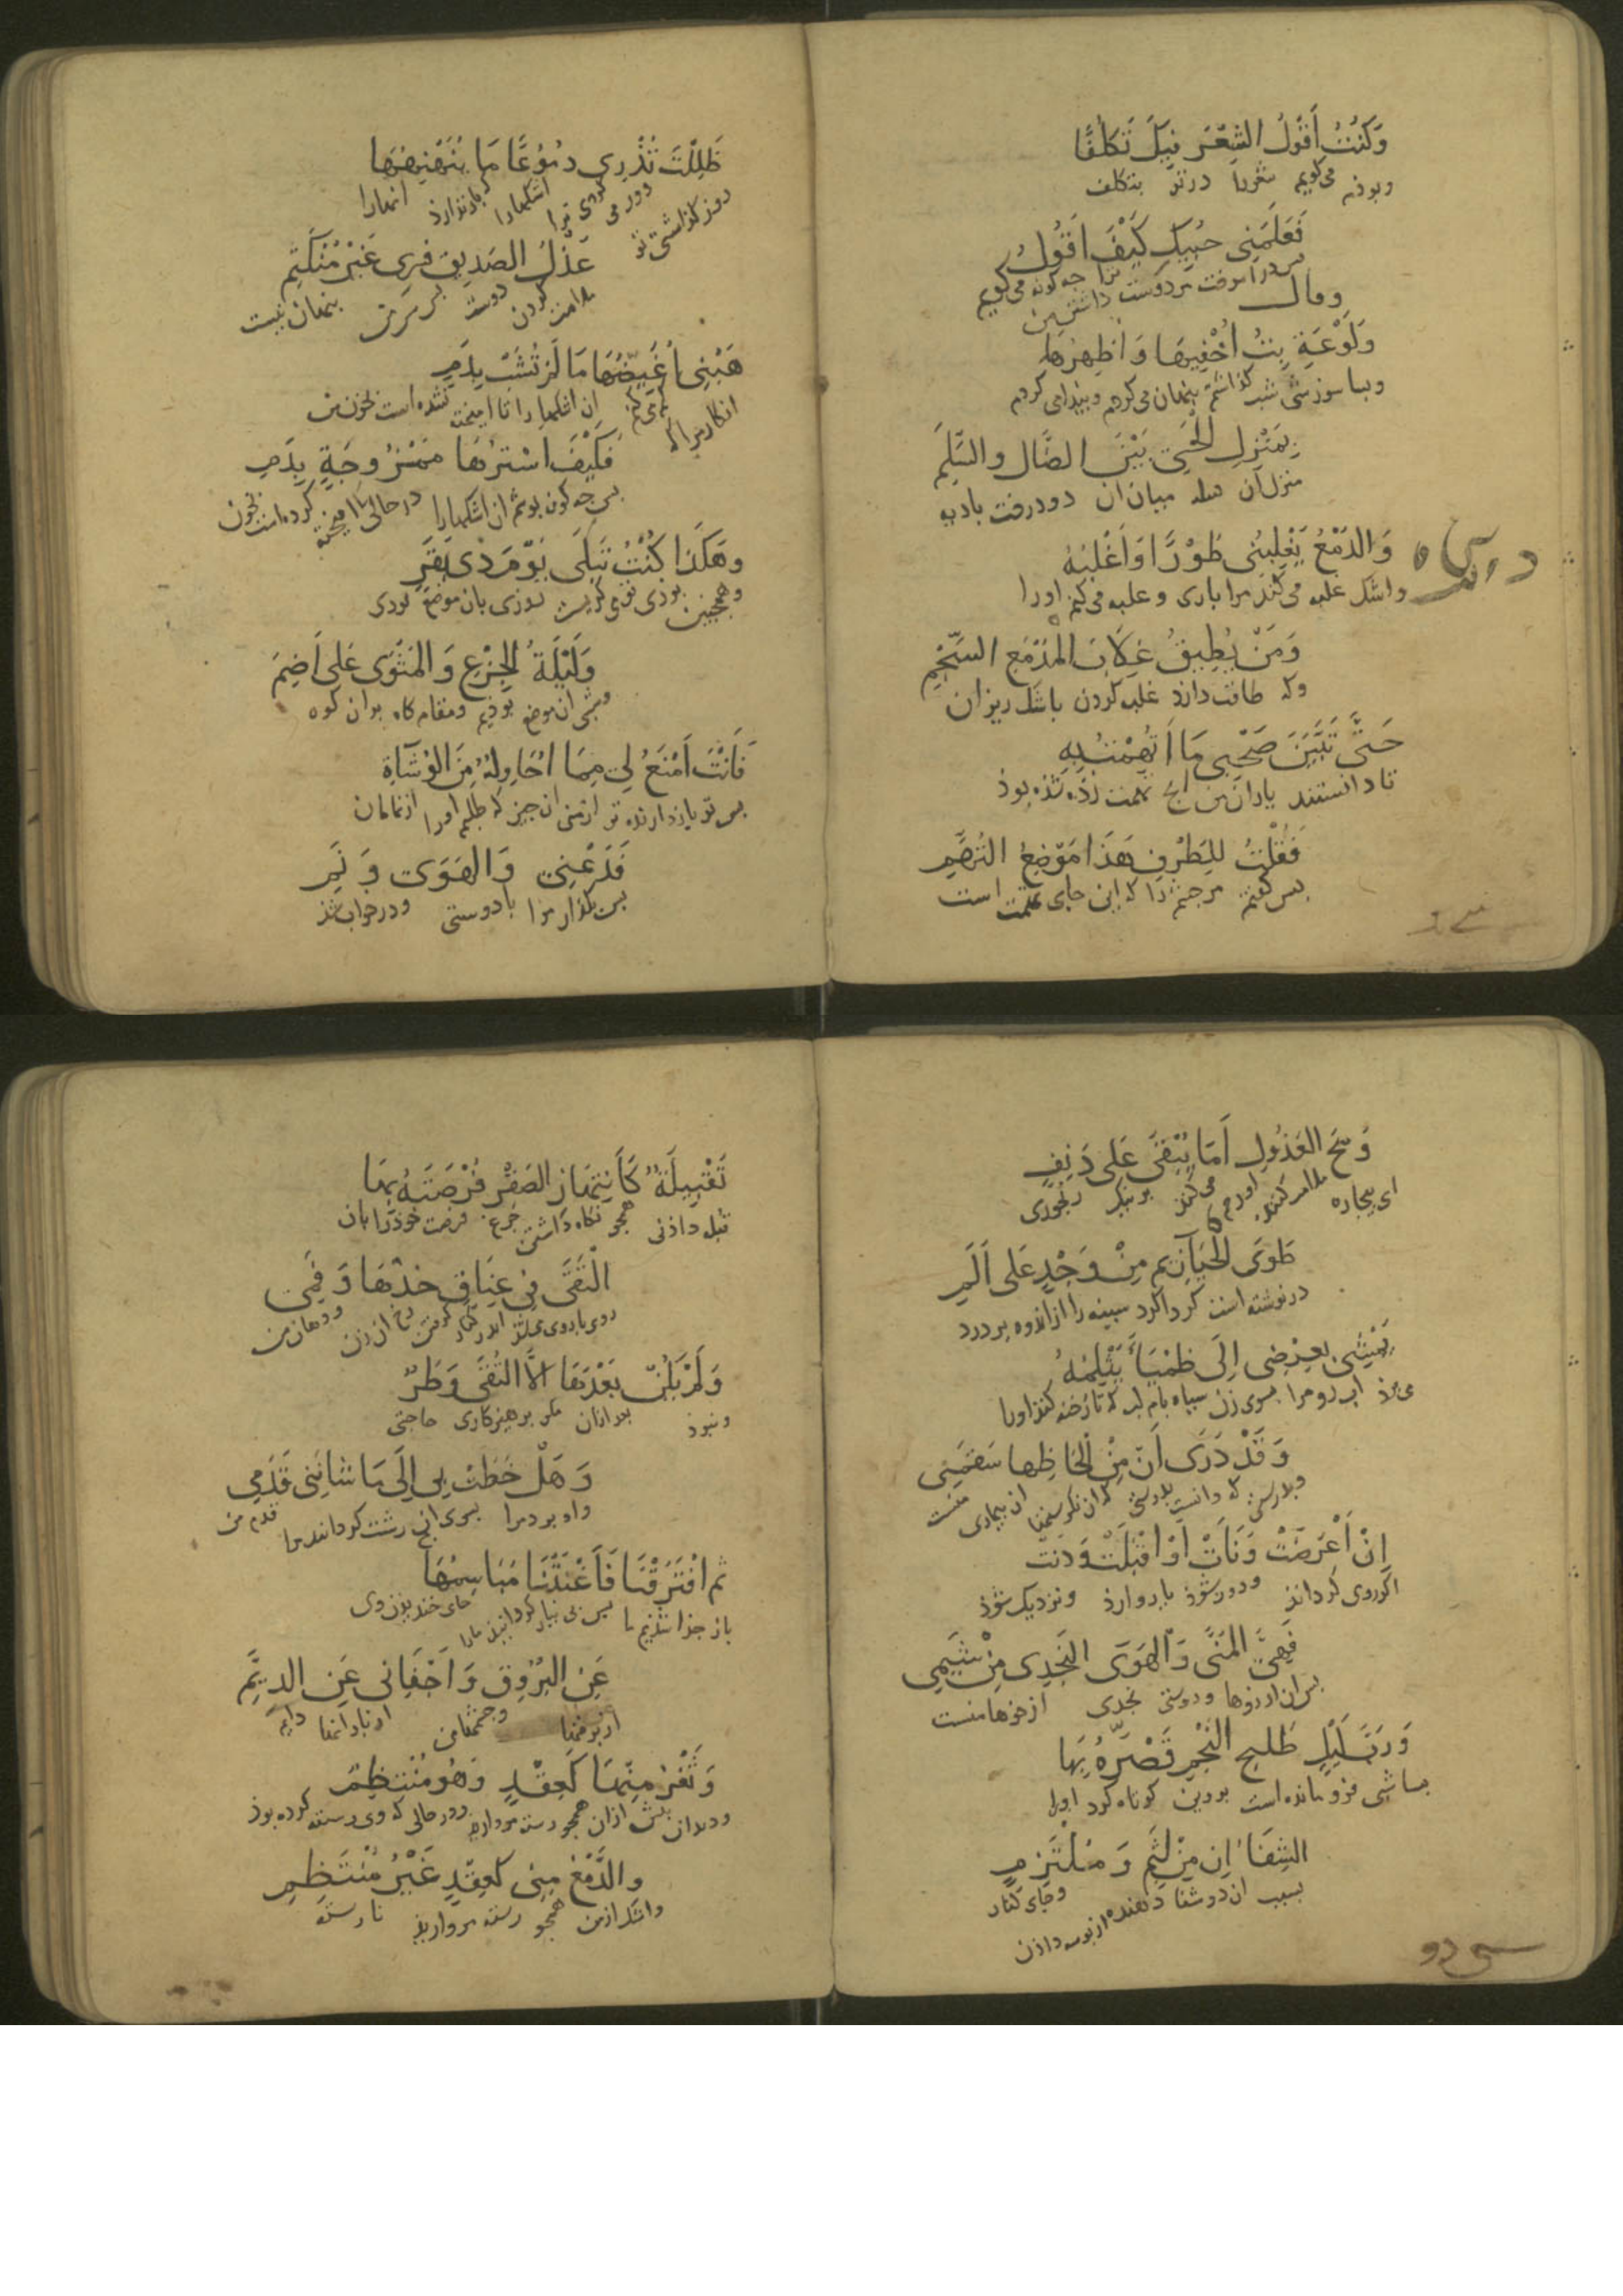 وَكُنْتُ أَقُولُ الشِّعْرَ فِيكَ تَكَلُّفًا
وبوذم می‌گویم شعر را در تو بتکلف
فَعَلَّمَنِي حُبِّيكَ كَيْفَ أَقُولُ
پس در آموخت مرا دوست داشتن من ترا چه گونه می‌گویم
وقال
وَلَوْعَةٍ بِتُّ أُخْفِيهَا وَأُظْهِرُهَا
وبسا سوزشی شب گذاشتم پنهان می‌کردم و پیدا می‌کردم
بِمَنْزِلِ الْحَيِّ بَيْنَ الضَّالِ وَالسَّلَمِ
منزل آن میان آن دو درخت بادیه
وَالدَّمْعُ يَغْلِبُنِي طَوْرًا وَأَغْلِبُهُ
واشک غلبه می‌کند مرا باری و غلبه می‌کنم اورا
وَمَنْ يُطِيقُ غِلَابَ الْمَدْمَعِ السَّجِمِ
وکه طاقت دارد غلبه کردن با اشک ریزان
حَتَّى تَبَيَّنَ صَحْبِي مَا اتُّهِمْتُ بِهِ
تا دانستند یاران من آنچ تهمت زده شده بوذ
فَقُلْتُ لِلطَّرْفِ هَذَا مَوْضِعُ التُّهَمِ
پس گفتم مر چشم را که این جای تهمت است
ظَلِلْتَ تُذْرِي دُمُوعًا مَا يُنَهْنِهُهَا
روز گذاشتی تو اشکها را که باز ندارد آنها را
عَذْلُ الصَّدِيقِ فَسِرِّي غَيْرُ مُنْكَتِمِ
ملامت کردن دوست پس سرّ من پنهان نیست
هَبْنِي أُغَيِّضُهَا مَا لَمْ تُشَبْ بِدَمٍ
انگار مرا که کم می‌کنم آن اشکها را تا آمیخته نشده است بخون من
فَكَيْفَ أَسْتُرُهَا مَمْزُوجَةً بِدَمِ
پس چه گون پوشم آن اشکها را در حالی که آمیخته کرده است بخون
وَهَكَذَا كُنْتُ تَبْكِي يَوْمَ ذِي بَقَرٍ
وهمچنین بودی تو می گریستی روزی بان موضع بودی
وَلَيْلَةَ الْجِزْعِ وَالْمَثْوَى عَلَى إِضَمِ
وشبی آن موضع بودیم ومقام گاه بر آن کوه
فَأَنْتَ أَمْنَعُ لِي مِمَّا أُحَاوِلُهُ مِنَ الْوُشَاةِ
پس تو باز دارنده تر از منی آن چیز که طلبم اورا از نمامان
فَدَعْنِي وَالْهَوَى وَنَمِ
پس بگذار مرا با دوستی و در خواب شذ
وَيْحَ الْعَذُولِ أَمَا يُبْقِي عَلَى دَنِفٍ
ای بیچاره ملامت کننده می‌کند بر رنجوری
طَوَى الْحَيَازِيمَ مِنْ وَجْدٍ عَلَى أَلَمِ
درنوشته است گرداگرد سینه را از اندوه بر درد
يَمْشِي بِعِرْضِي إِلَى ظَمْيَاءَ يَثْلِمُهُ
می‌رود آب رو مرا بسوی زن سیاه بام لب که تا رخنه کند اورا
وَقَدْ دَرَى أَنَّ مِنْ أَلْحَاظِهَا سَقَمِي
وبدرستی که دانست بدرستی که از نگرستنها آن بیماری منست
إِنْ أَعْرَضَتْ وَنَأَتْ أَوْ أَقْبَلَتْ وَدَنَتْ
اگر روی گرداند و دور شوذ یا رو آرذ و نزدیک شوذ
فَهِيَ الْمُنَى وَالْهَوَى النَّجْدِيُّ مِنْ شِيَمِي
پس آن آرزوها و دوستی نجدی از خوها منست
وَرُبَّ لَيْلٍ طَلِيحِ النَّجْمِ قَصَّرَهُ بِهَا
بسا شبی فرو مانده است پروین کوتاه کرد اورا
الشِّفَاءَانِ مِنْ لَثْمٍ وَمُلْتَزَمِ
بسبب آن دو شفا دهنده از بوسه داذن وجای کنار
سی دو
تَقْبِيلَةٌ كَانْتِهَازِ الصَّقْرِ فُرْصَتَهُ بِهَا
قبله داذنی همچو نگاه داشتن چرغ فرصت خوذ را بان
الْتَقَى فِي عِنَاقٍ خَدُّهَا وَفَمِي
روی با روی شد اندر کنار گرفتن رخ آن زن و دهان من
وَلَمْ يَكُنْ بَعْدَهَا إِلَّا التُّقَى وَطَرٌ
ونبوذ بعد از آن مگر پرهیزکاری حاجتی
وَهَلْ خَطَتْ بِي إِلَى مَا شَانَنِي قَدَمِي
وراه برد مرا بسوی آنچ زشت گرداند مرا قدم من
ثُمَّ افْتَرَقْنَا فَأَغْنَتْنَا مَبَاسِمُهَا
باز جذا شذیم ما پس بی نیاز گردانیذ ما را جای خندیدن وی
عَنِ الْبُرُوقِ وَأَجْفَانِي عَنِ الدِّيَمِ
از برقها وچشمها من از بارانها دایم
وَثَغْرُ مَيَّتِهَا كَعِقْدٍ وَهْوَ مُنْتَظِمٌ
ودندان از آن همچو رسته مروارید و در حالی که وی رسته کرده بوذ
وَالدَّمْعُ مِنِّي كَعِقْدٍ غَيْرُ مُنْتَظِمِ
واشک از من همچو رسته مروارید نا رسته